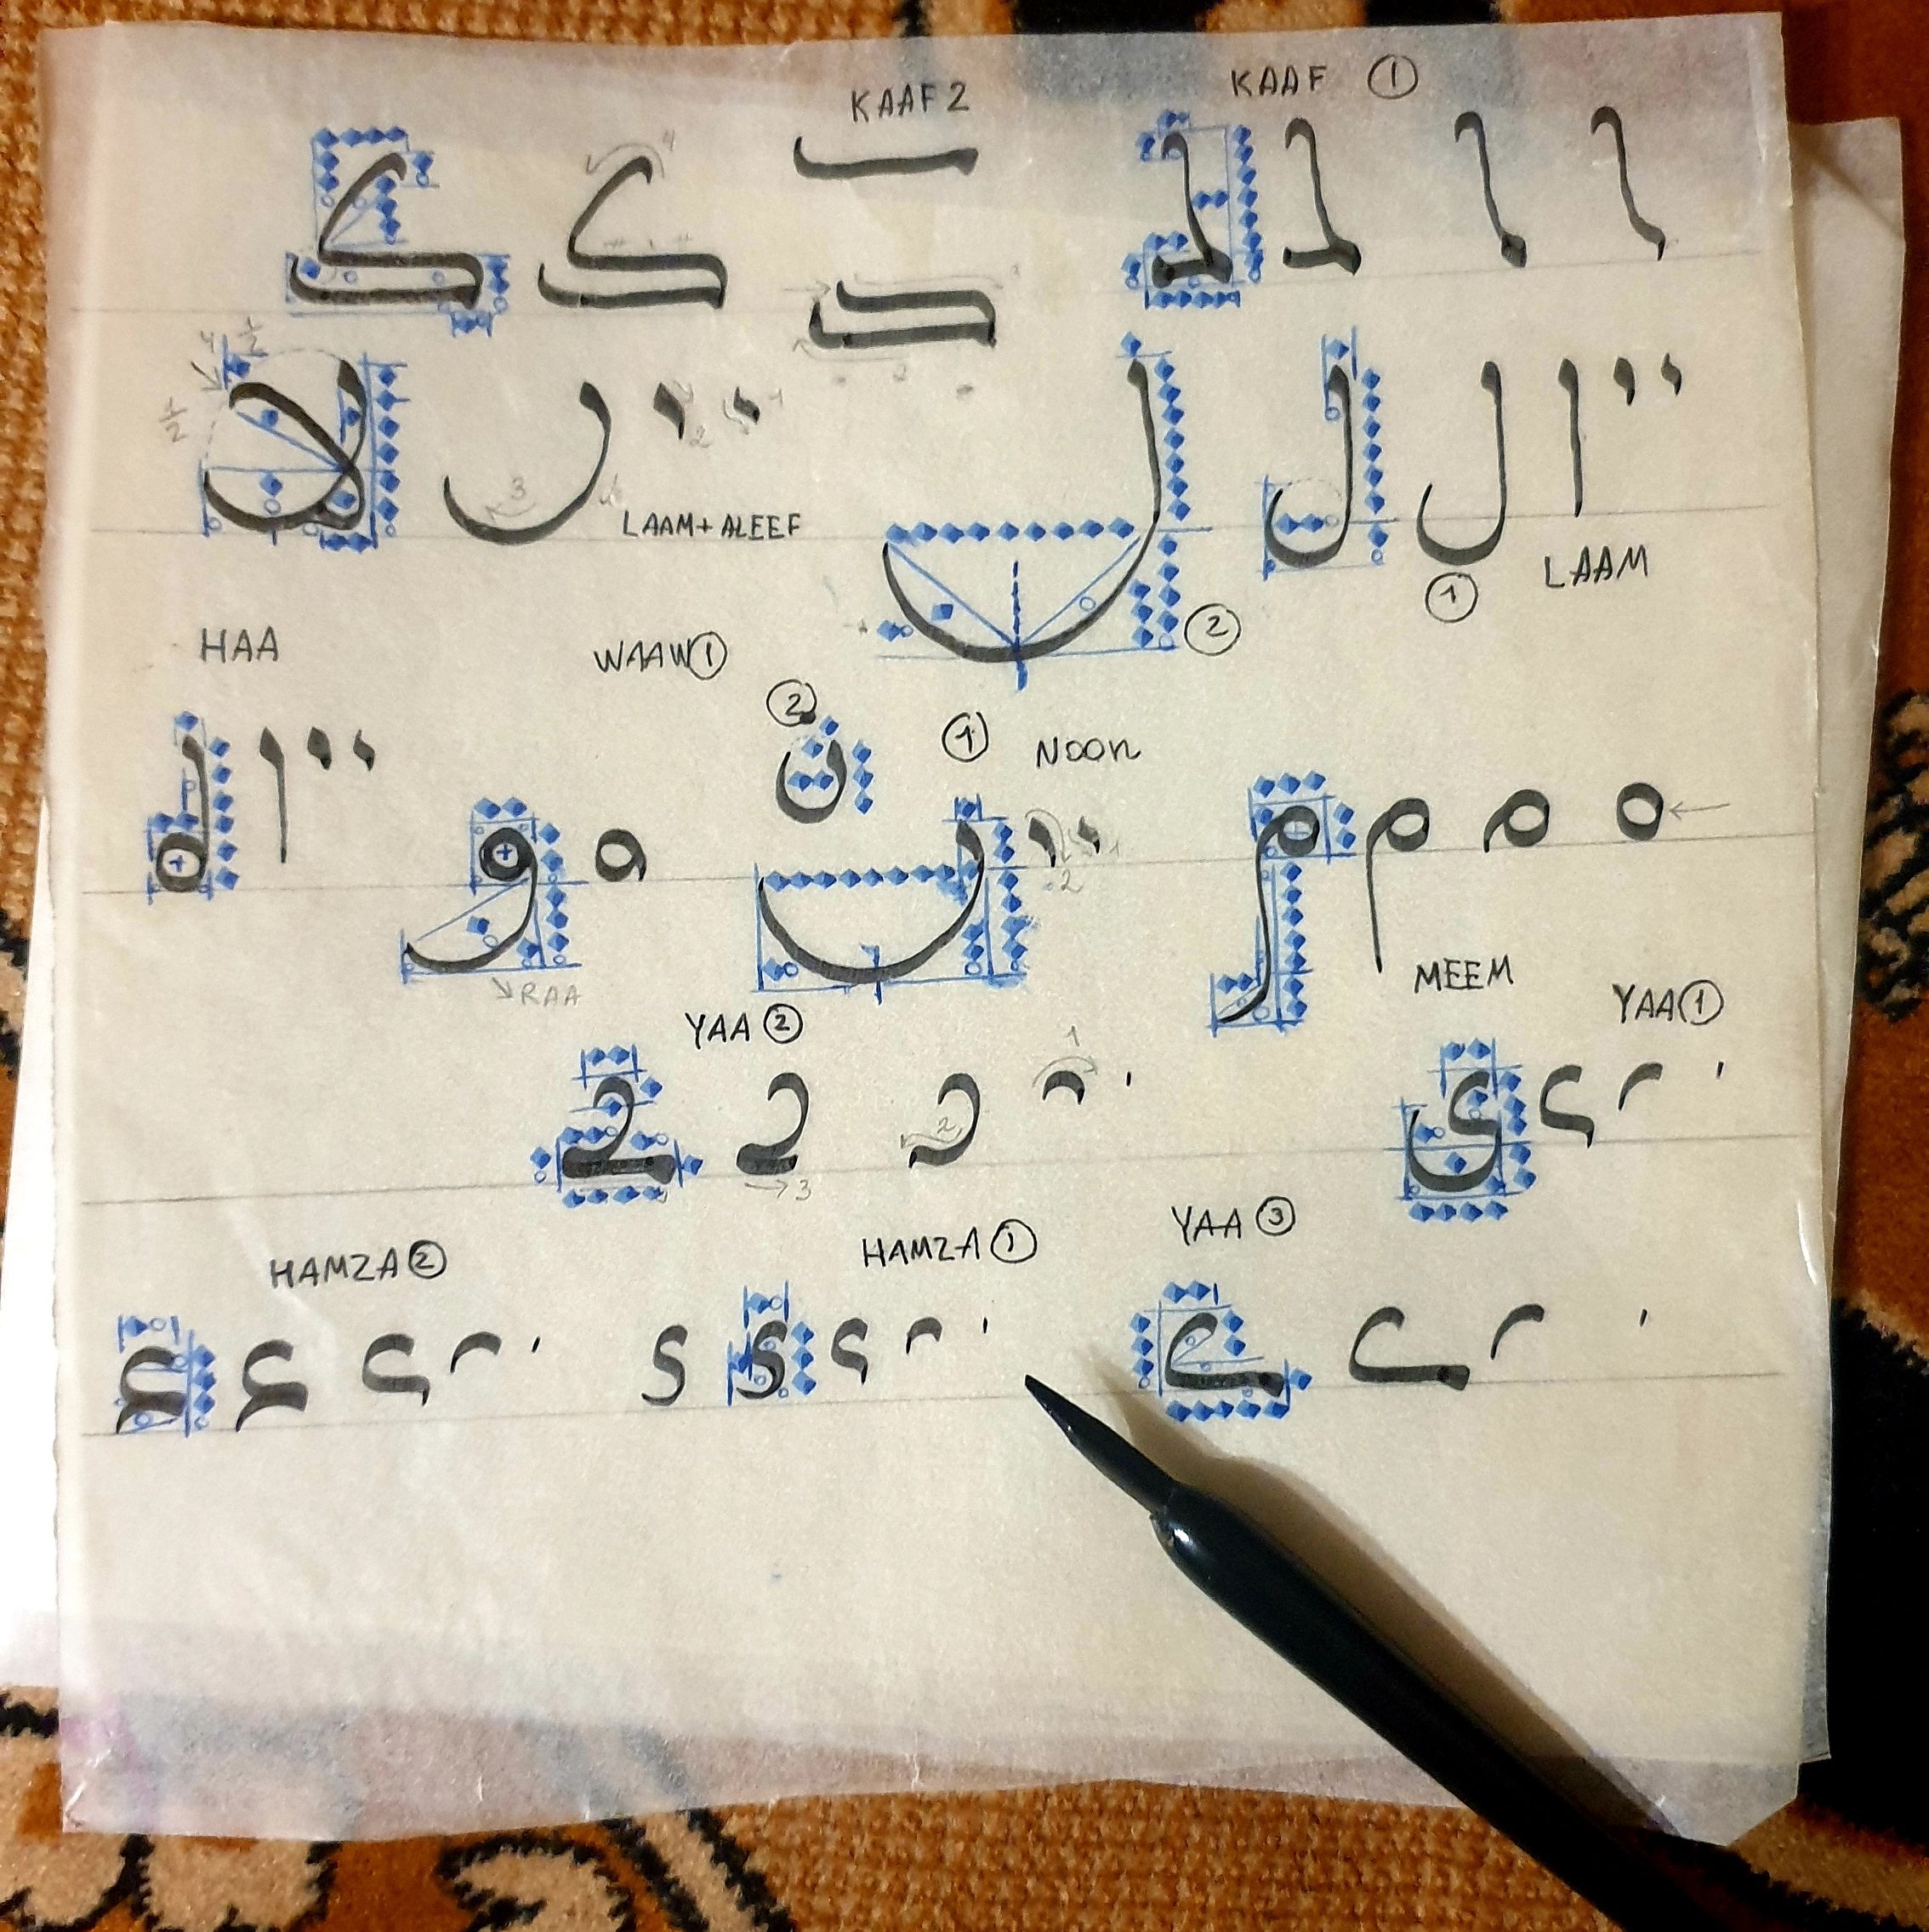 KAAF ① KAAF 2
ك ك
لا LAAM+ALEEF ل ② ل ل ① LAAM
HAA WAAW① ② ① NOON
ه و → RAA ن ن م م م MEEM
YAA② YAA①
ي
HAMZA② HAMZA① YAA③
ء ء ء